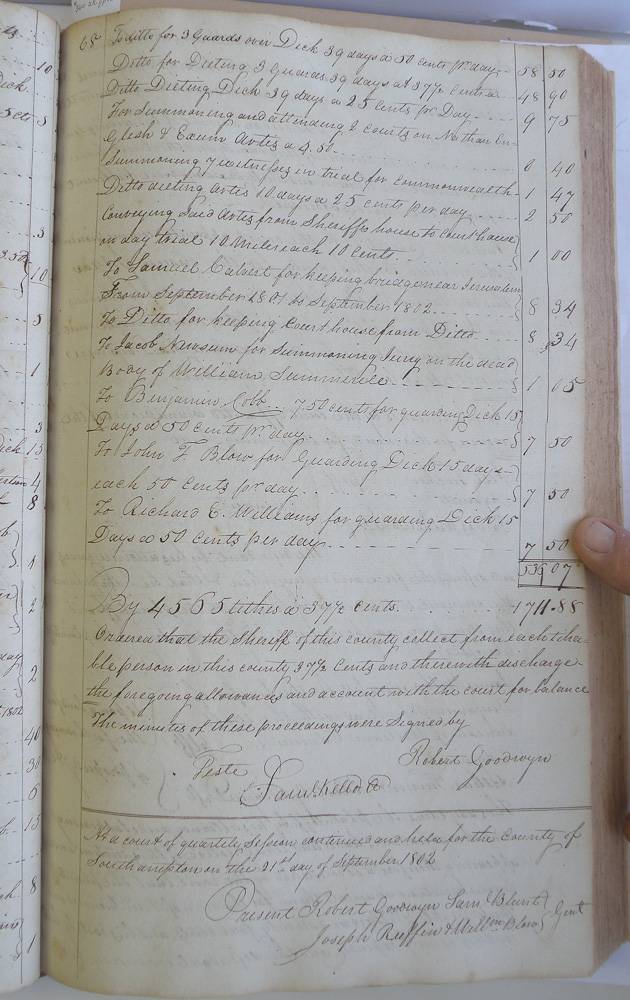 68
To ditto for 3 Guards over Dick 39 days a 50 cents pr. day 58 50
Ditto for Dieting 3 Guards 39 days at 37½ cents a 48 90
Ditto Dieting Dick 39 days a 25 Cents pr Day 9 75
For Summoning and attending 2 courts on Nathan En
glesh & Exum Artes a 4.50 40
Summoning 7 witnesses in trial for Commonwealth 1 47
Ditto dieting Artes 10 days a 25 cents per day 2 50
Conveying Said Artes from Sheriffs house to Courthouse
on day trial 10 Miles each 10 Cents 1 00
To Samuel Calvert for keeping bridge near Jerusalem
From September 1801 to September 1802 8 34
To Ditto for keeping Courthouse from Ditto 8 34
To Jacob for Summoning Jury on the dead
Body of William Summerell 1 05
To Benjamin Cobb 7 50 cents for guarding Dick 15
Days a 50 cents pr. day 7 50
To John F. Blow for Guarding Dick 15 days
each 50 Cents pr day 7 50
To Richard E. Williams for guarding Dick 15
Days a 50 Cents per day 7 50
539 07
By 4565 tithes a 37½ Cents. 1711.88
Ordered that the Sheriff of this county collect from each titha
ble person in this county 37½ Cents and therewith discharge
the foregoing allowances and account with the court for balance
The minutes of these proceedings were Signed by
Robert Goodwyn
Teste
Saml Kello Ct
At a court of quartely Session continued and held for the County of
Southampton on the 21st day of September 1802
Present Robert Goodwyn Sam Blunt
Joseph Ruffin & Willm. Blow Gent